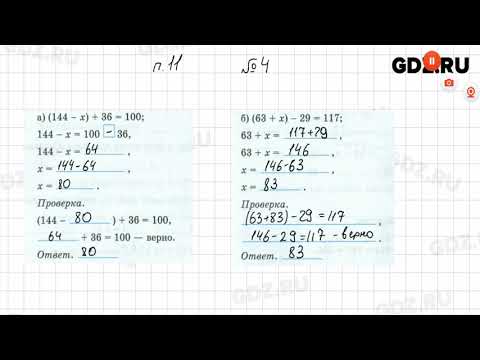 п. 11 № 4
GDZ.RU
а) (144 − x) + 36 = 100;
144 − x = 100 − 36,
144 − x = 64,
x = 144-64,
x = 80.
Проверка.
(144 − 80) + 36 = 100,
64 + 36 = 100 — верно.
Ответ. 80
б) (63 + x) − 29 = 117;
63 + x = 117+29,
63 + x = 146,
x = 146-63,
x = 83.
Проверка.
(63+83)-29=117,
146-29=117 - верно.
Ответ. 83
GDZ.RU
GDZ.RU
GDZ.RU